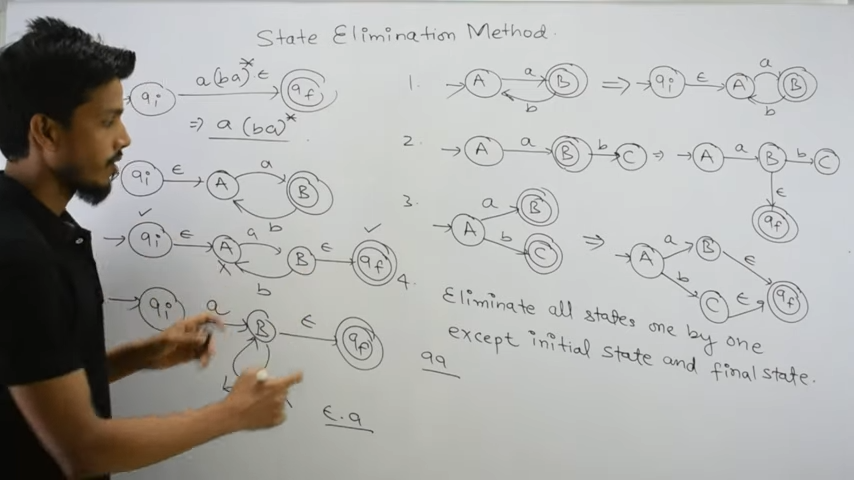 State Elimination Method.
qi a(ba)*.ε qf
⇒ a (ba)*
qi ε A a B b
qi ε A a B b ε qf
qi a B ε qf
ε.a
1. A a B b ⇒ qi ε A a B b
2. A a B b C ⇒ A a B b C ε qf
3. A a B b C ⇒ A a B b C ε ε qf
4. Eliminate all states one by one
except initial state and final state.